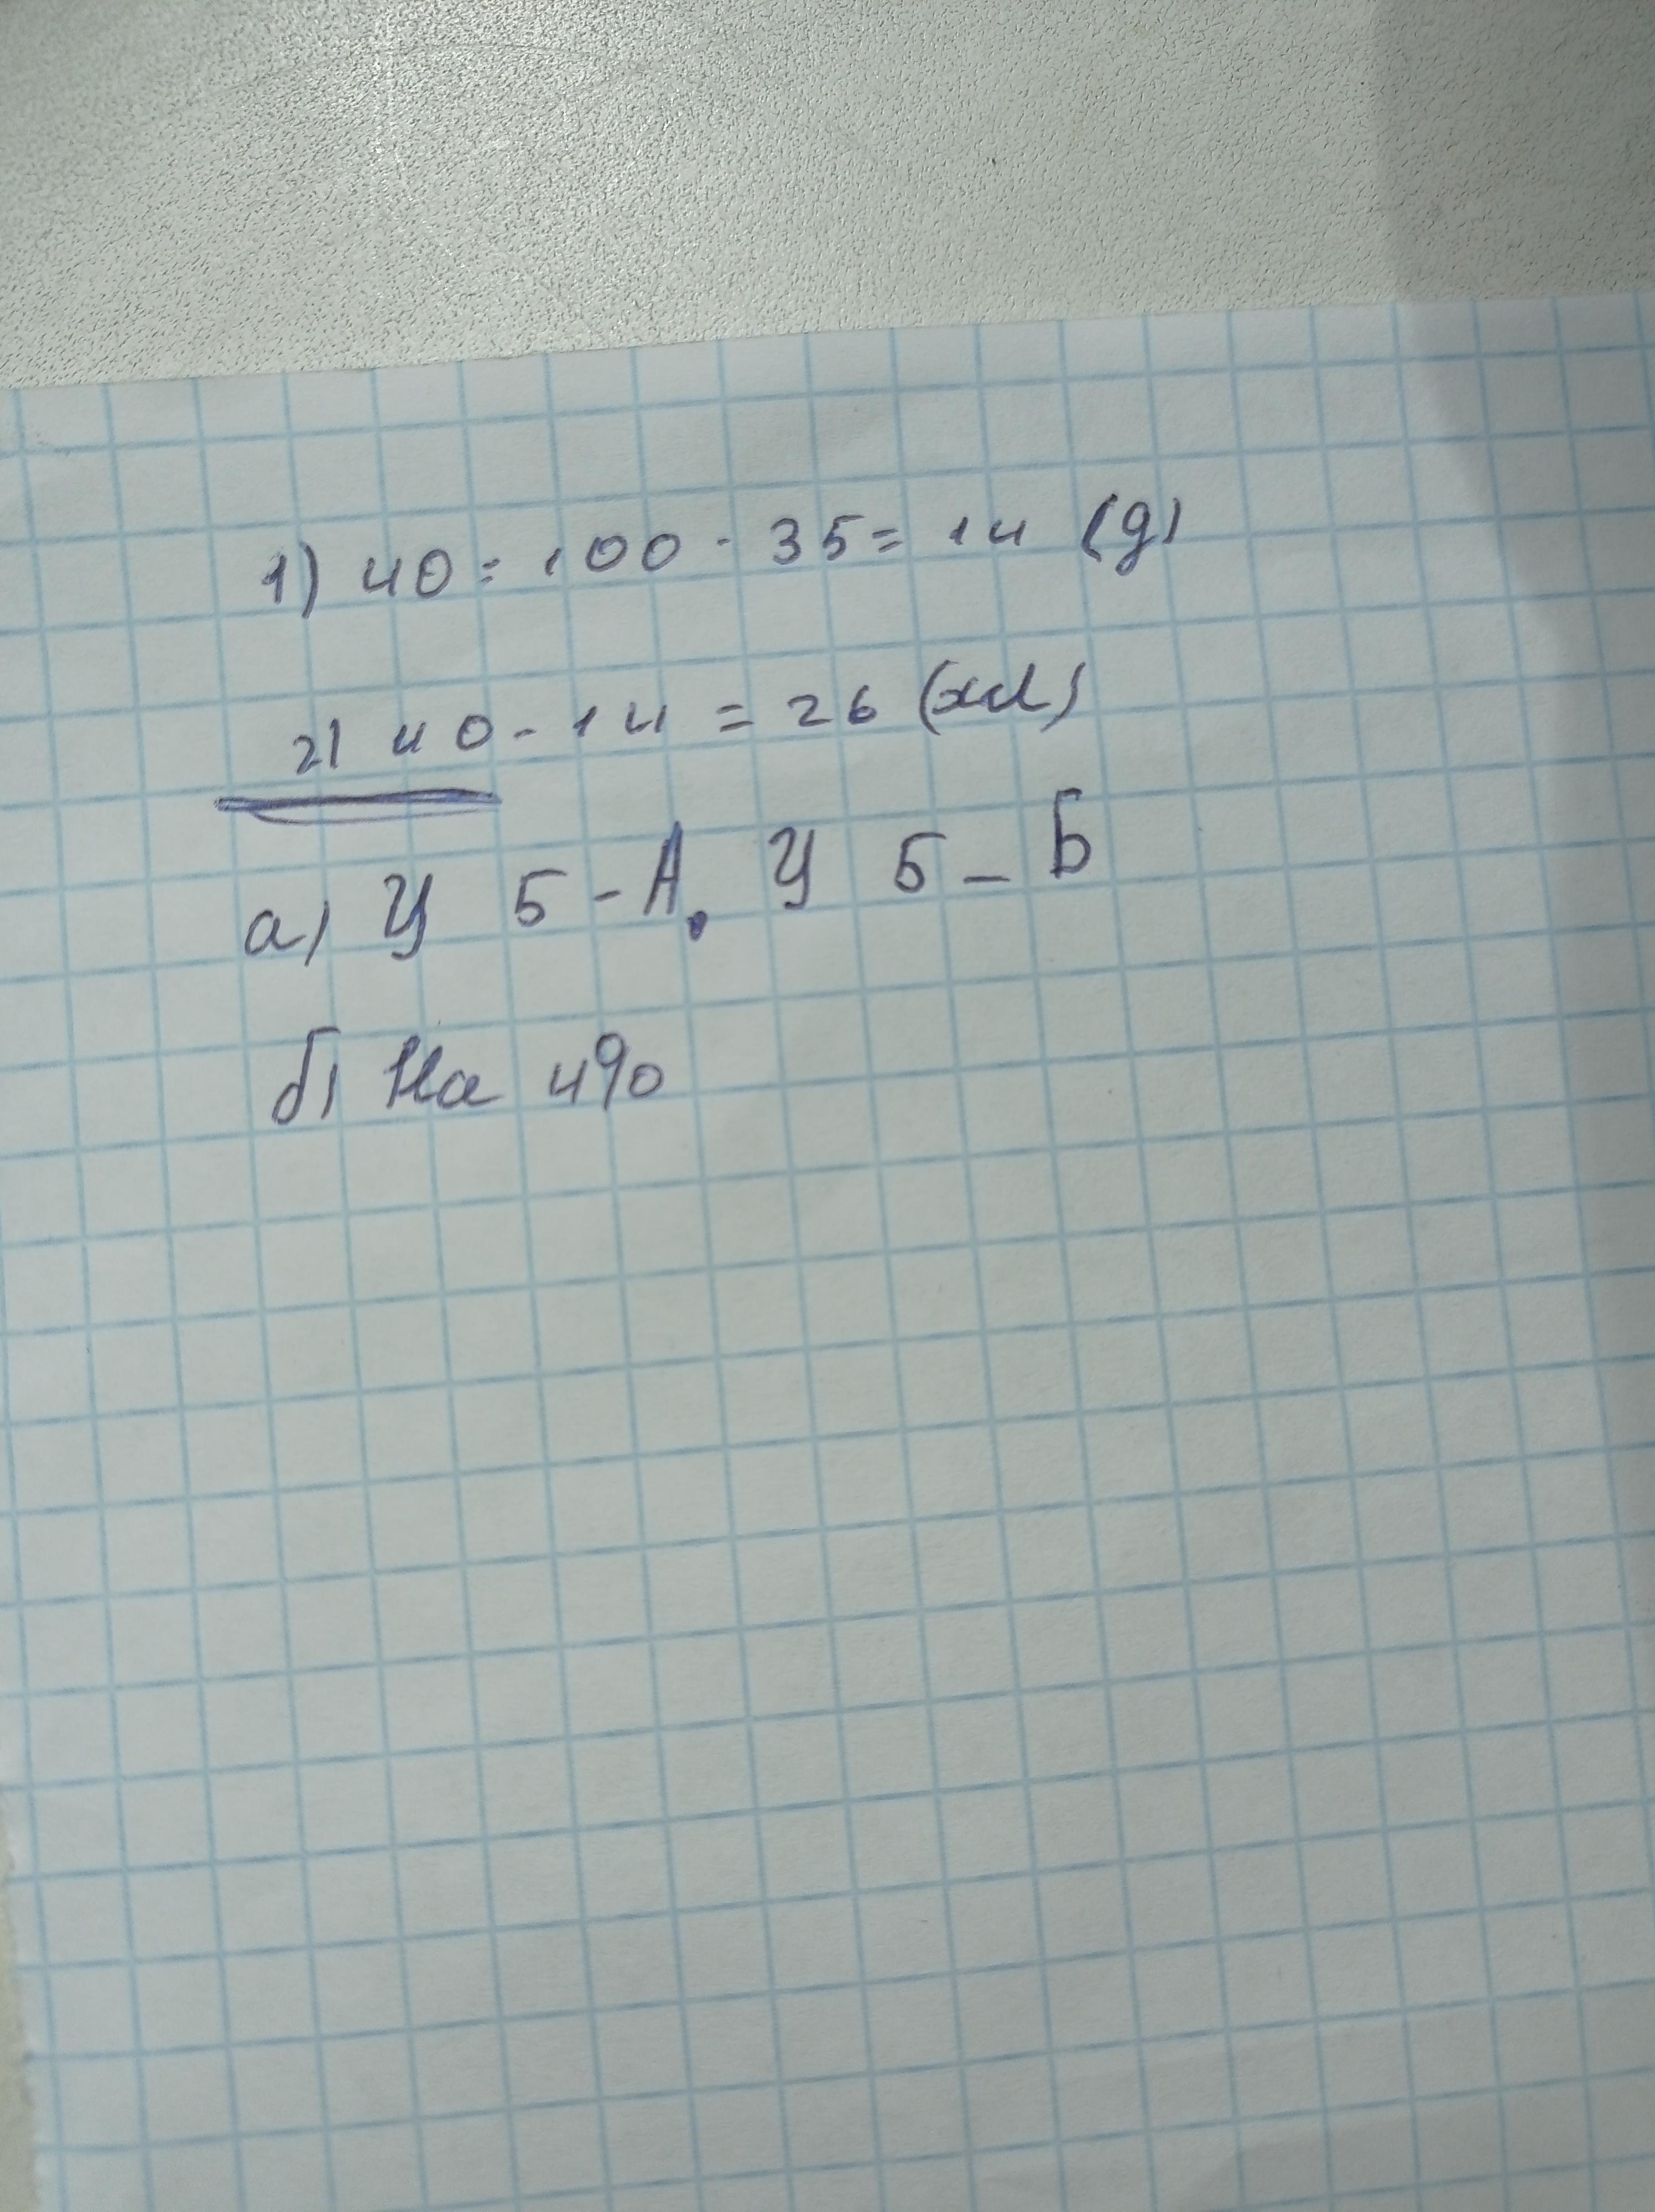 1) 40 : 100 · 35 = 14 (д)
2) 40 - 14 = 26
а) У 5 - А. У 5 - Б
б) На 4%